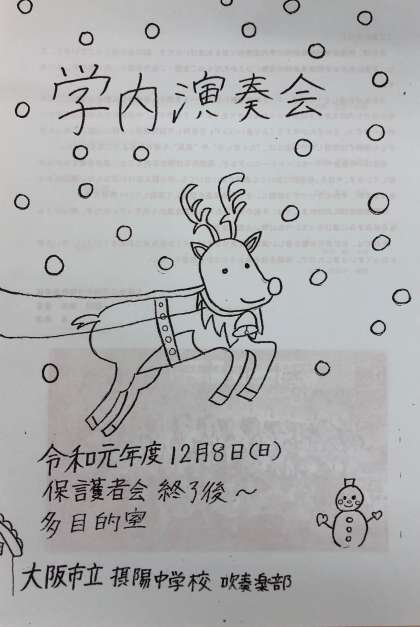 学内演奏会
令和元年度12月8日(日)
保護者会 終了後~
多目的室
大阪市立 摂陽中学校 吹奏楽部